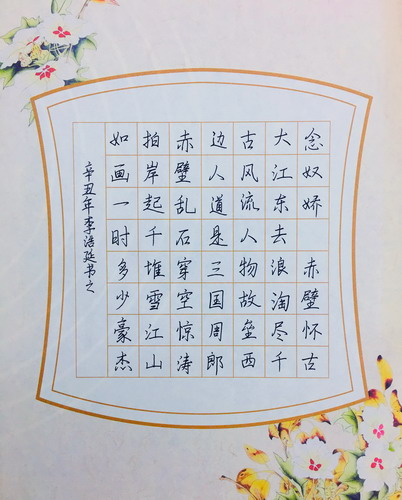 念奴娇 赤壁怀古
大江东去浪淘尽千
古风流人物故垒西
边人道是三国周郎
赤壁乱石穿空惊涛
拍岸起千堆雪江山
如画一时多少豪杰
辛丑年李浩延书之